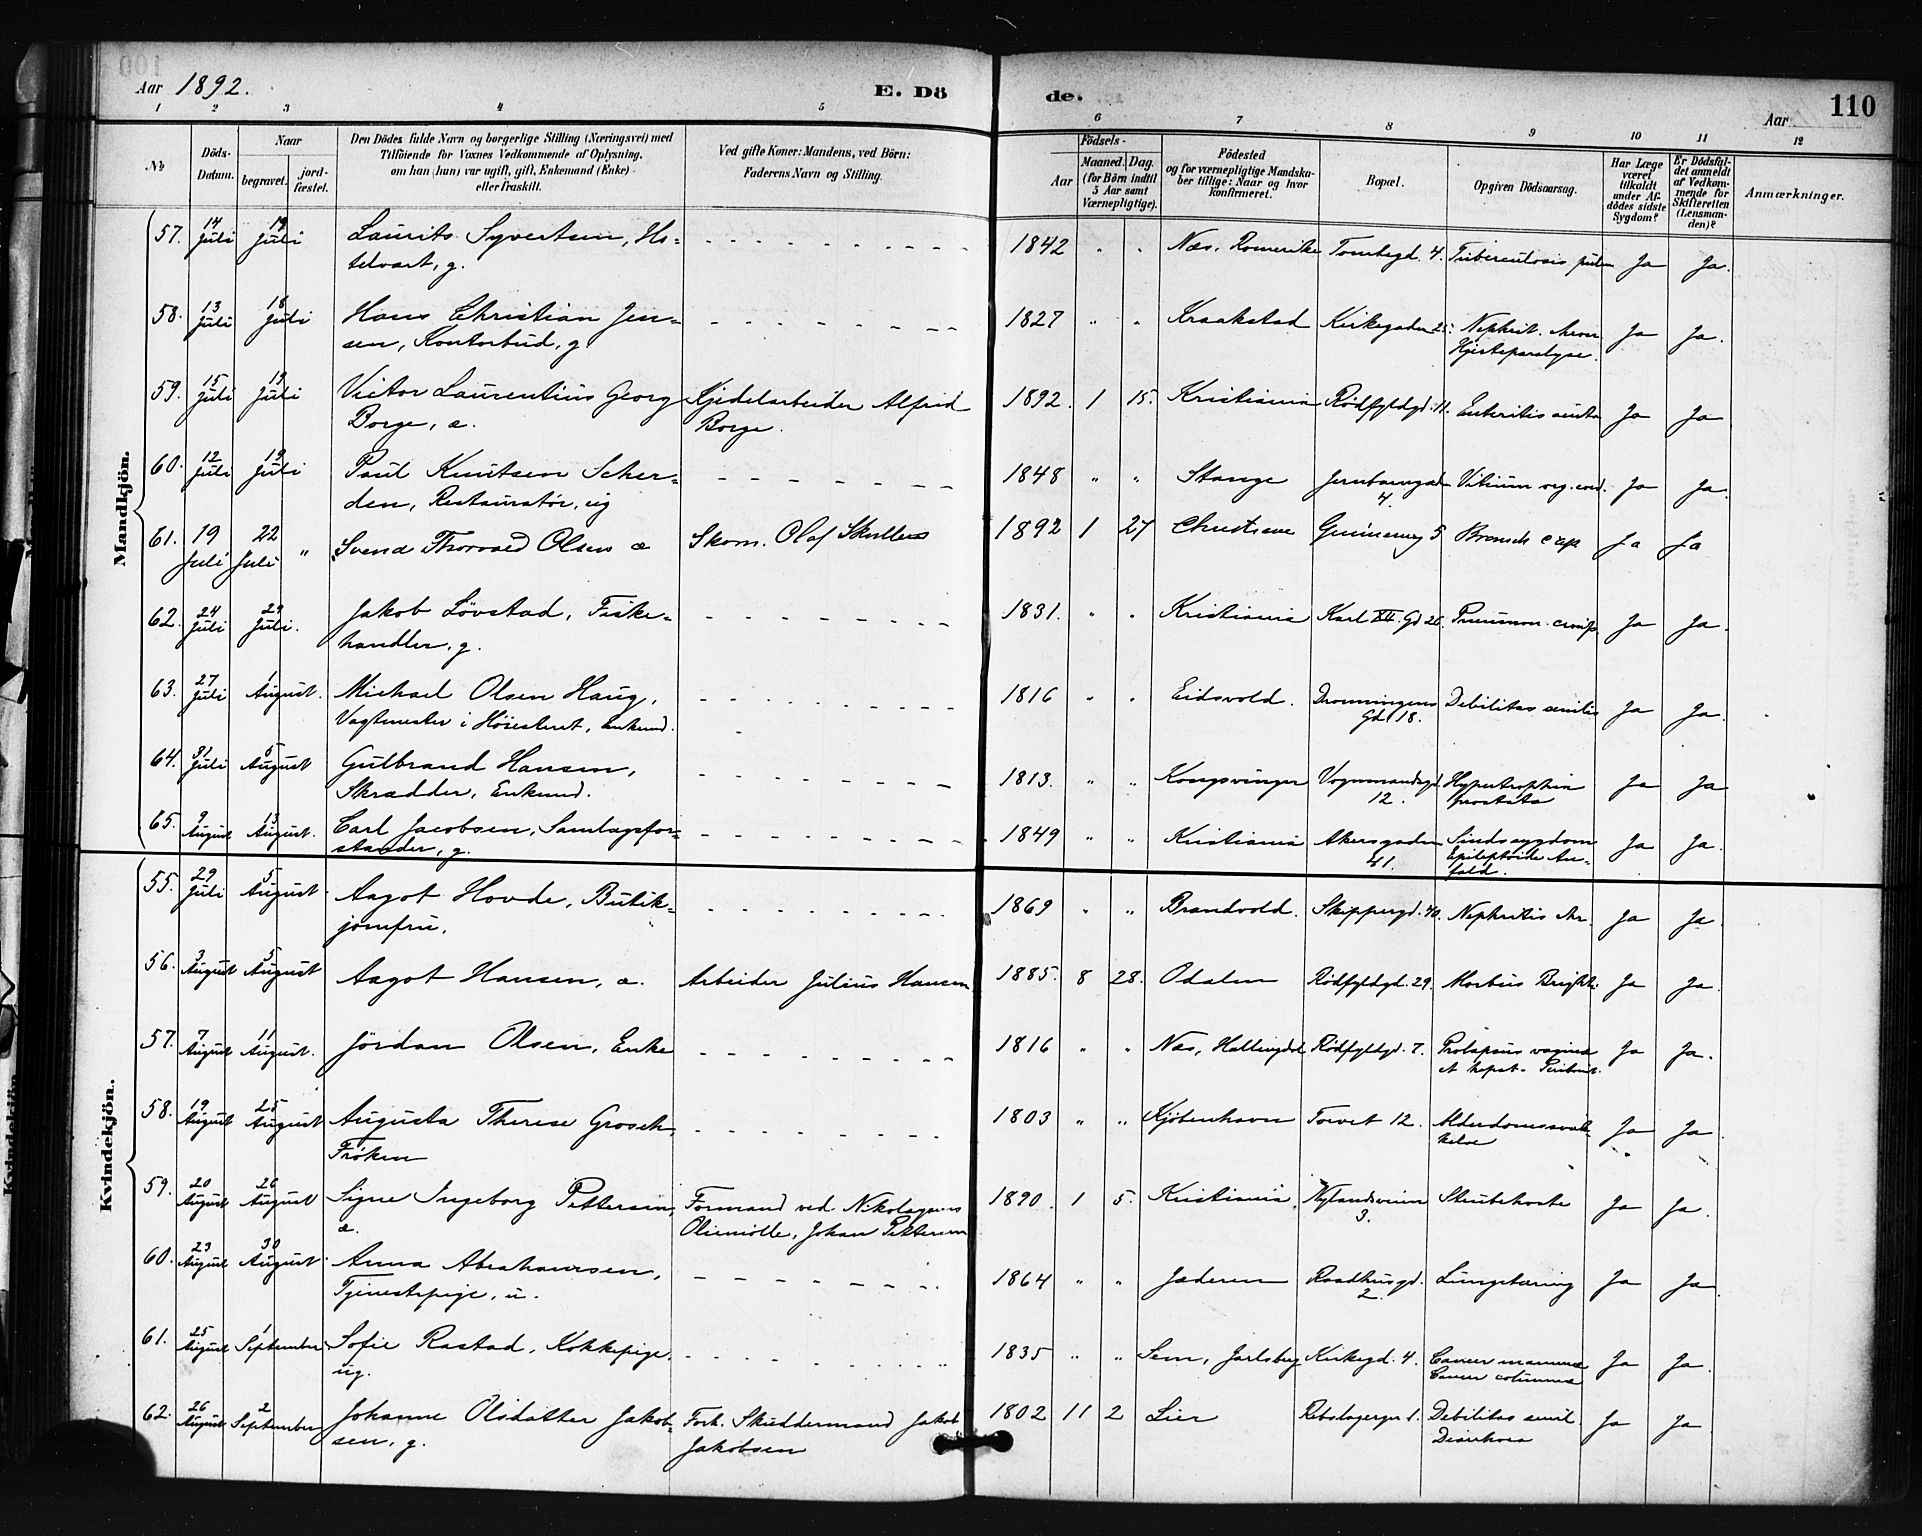 Aar 1892.
E. Døde.
Aar
110
1 2 3 4 5 6 7 8 9 10 11 12
No
Döds-Datum.
Naar
begravet.
jord-fæstet.
Den Dödes fulde Navn og borgerlige Stilling (Næringsvei) med
Tilföiende for Voxnes Vedkommende af Oplysning,
om han (hun) var ugift, gift, Enkemand (Enke)
eller fraskilt.
Ved gifte Koner: Mandens, ved Börn:
Faderens Navn og Stilling.
Födsels-
Aar
Maaned.
Dag.
(for Börn indtil
5 Aar samt
Værnepligtige).
Födested
og for værnepligtige Mandska-
ber tillige: Naar og hvor
konfirmeret.
Bopæl.
Opgiven Dödsaarsag.
Har Læge
været
tilkaldt
under Af-
dödes sidste
Sygdom?
Er Dödsfal-
det anmeldt
af Vedkom-
mende for
Skifteretten
(Lensman-
den)?
Anmærkninger.
Mandkjön.
57. 14 Juli 19 Juli Laurits Syvertsen, Ho- 1842 " " Næs, Romerike Tomtegd. 4. Tuberculosis pulm Ja Ja.
telvært, g.
58. 13 Juli 18 Juli Hans Christian Jen- 1827 " " Kraakstad Kirkegaden 25. Nephrit. Ja Ja.
sen, Kontorbud, g. Hjerteparalyse.
59. 15 Juli 19 Juli Victor Laurentius Georg Kjedelarbeider Alfred 1892. 1 15. Kristiania Rødfyldgd. 11. Enteritis acuta Ja Ja
Borge, æ. Borge.
60. 12 Juli 19 Juli Paul Knutsen Scher- 1848 " " Stange Jernbanegaden Vitium org. cord. Ja Ja.
den, Restauratør, ug 4.
61. 19 Juli 22 Juli " Svend Thorvald Olsen æ Skom. Olaf 1892 1 27 5 Bronch cap Ja Ja
62. 24 Juli 29 Juli. Jakob Løvstad, Fiske- 1831. " " Kristiania Karl XII Gd 26. Pneumon. croup. Ja Ja.
handler, g.
63. 27 Juli 1 August. Michael Olsen Haug, 1816 " " Eidsvold. Dronningens Debilitas senilis Ja Ja.
Vagtmester i Høiesteret, Enkemd. Gd. 18.
64. 31 Juli 5 August Gulbrand Hansen, 1813. " " Kongsvinger Vognmandsgd. Hypertrophia Ja Ja
Skrædder, Enkemd. 12. prostata
65. 9 August 13 August. Carl Jacobsen, Samlagsfor- 1849 " " Kristiania Akersgaden Sindssygdom Ja Ja.
stander, g. 41. Epileptoide An-
fald.
Kvindekjön.
55. 29 Juli 5 August Aagot Hovde, Butik- 1869 " " Brandvold. Skippergd. 40. Nephritis chr. Ja Ja.
jomfru.
56. 3 August 5 August Aagot Hansen, æ. Arbeider Julius Hansen 1885. 8 28. Odalen Rødfyldgd. 29. Morbus Brightii Ja Ja.
57. 7 August 11 August. Jördan Olsen, Enke 1816 " " Næs, Hallingdal Rødfyldgd. 7. Prolapsus vagina Ja Ja.
58. 19 August 25 August Augusta Therese Grosch, 1803 " " Kjøbenhavn Torvet 12. Alderdomssvak- Ja Ja.
Frøken kelse
59. 20 August 26 August Signe Ingeborg Pettersen, Formand ved Nikolaysens 1890. 1 5. Kristiania. Nylandsveien Strubehoste Ja Ja.
æ. Oliemølle, Johan Pettersen 3.
60. 23 August 30 August Anna Abrahamsen, 1864 " " Jæderen Raadhusgd. Lungetæring Ja Ja.
Tjenestepige, u. 2.
61. 25 August 1 September Sofie Rastad, Kokkepige, 1835 " " Sem, Jarlsberg Kirkegd. 4. Cancer mamma Ja Ja.
ug. Cancer columna
62. 26 August 2 September Johanne Olsdatter Jakob- Forh. Skuddermand Jakob 1802 11 2 Lier Rebslagergd 1. Debilitas senil Ja Ja
sen, g. Jakobsen Diarrhoea